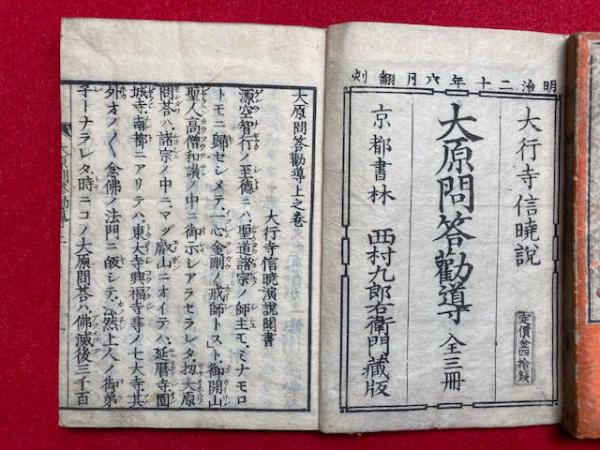 明治二十年六月翻刻
大行寺信曉說
大原問答勸導 全三冊
定價金四拾錢
京都書林 西村九郎右衛門藏版
大原問答勸導上之卷
大行寺信曉演說聞書
源空智行ノ至德ニハ聖道諸宗ノ師主モミナモロ
トモニ歸セシメテ一心金剛ノ戒師トスト御開山
聖人高僧和讃ノ中ニ御示シアラセラレタ扨大原
問答ハ諸宗ノ中ニマヅ叡山ニオイテハ延曆寺園
城寺南都ニアリテハ東大寺興福寺等ノ七大寺其
外オノ〱念佛ノ法門ニ皈シテ法然上人ノ御弟
子トナラレタ時ニコノ大原問答ハ佛滅後三千百
大原問答勸導上